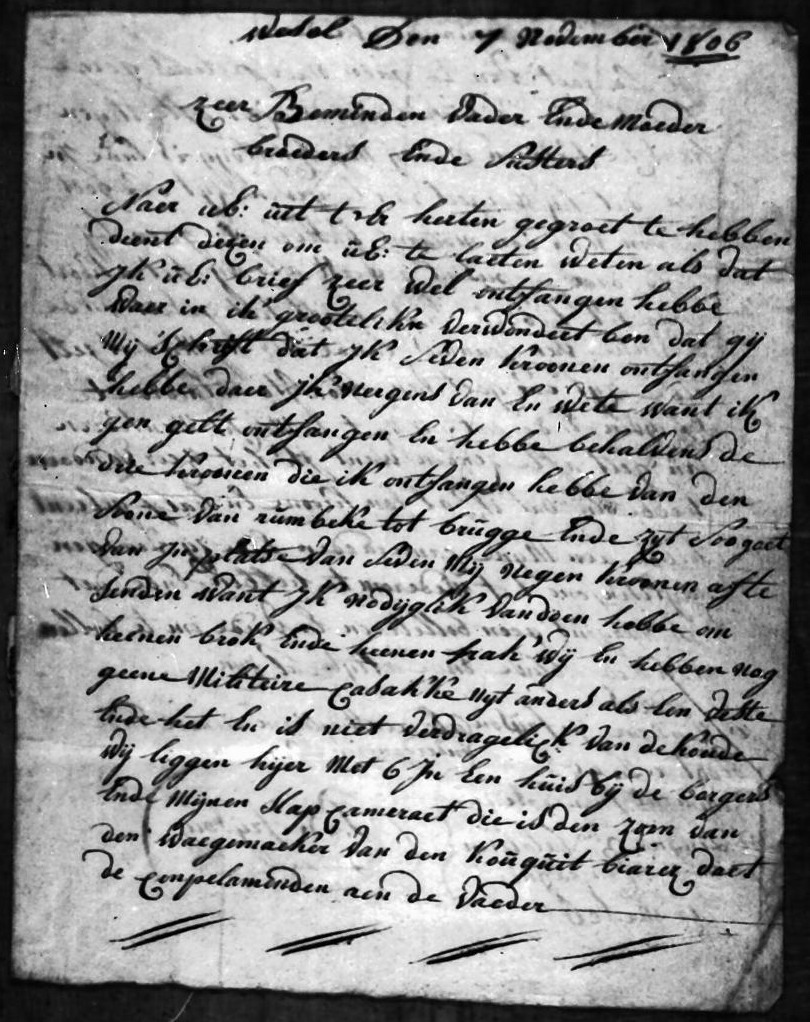 Wesel Den 7 November 1806
zeer Beminden Vader Ende Moeder
broeders Ende Susters
Naer uE: uit t'er herten gegroet te hebben
dient dezen om uE: te laeten weten als dat
Jk uE: brief zeer wel ontfangen hebbe
waer in ik grootelikx verwondert ben dat gij
Mij schrijft dat Jk seven kroonen ontfangen
hebbe daer Jk nergens van En wete want ik
gen gelt ontfangen En hebbe behalvens de
drie kroonen die ik ontfangen hebbe van den
Soone van rumbeke tot brugge Ende zyt Soo goet
van Jn plaetse van seven Mij negen kroonen af te
senden want Jk nodijglik van doen hebbe om
keenen brok Ende keenen frak Wij En hebben nog
geene Militaire Casakke nyt anders als Een veste
Ende het En is niet verdragelijk van de koude
Wij liggen hijer Met 6 Jn Een huis bij de borgers
Ende Mijnen slap cameraet die is den zoon van
den Waegemaeker van den doet
de Conpelaminden aen de Vaeder